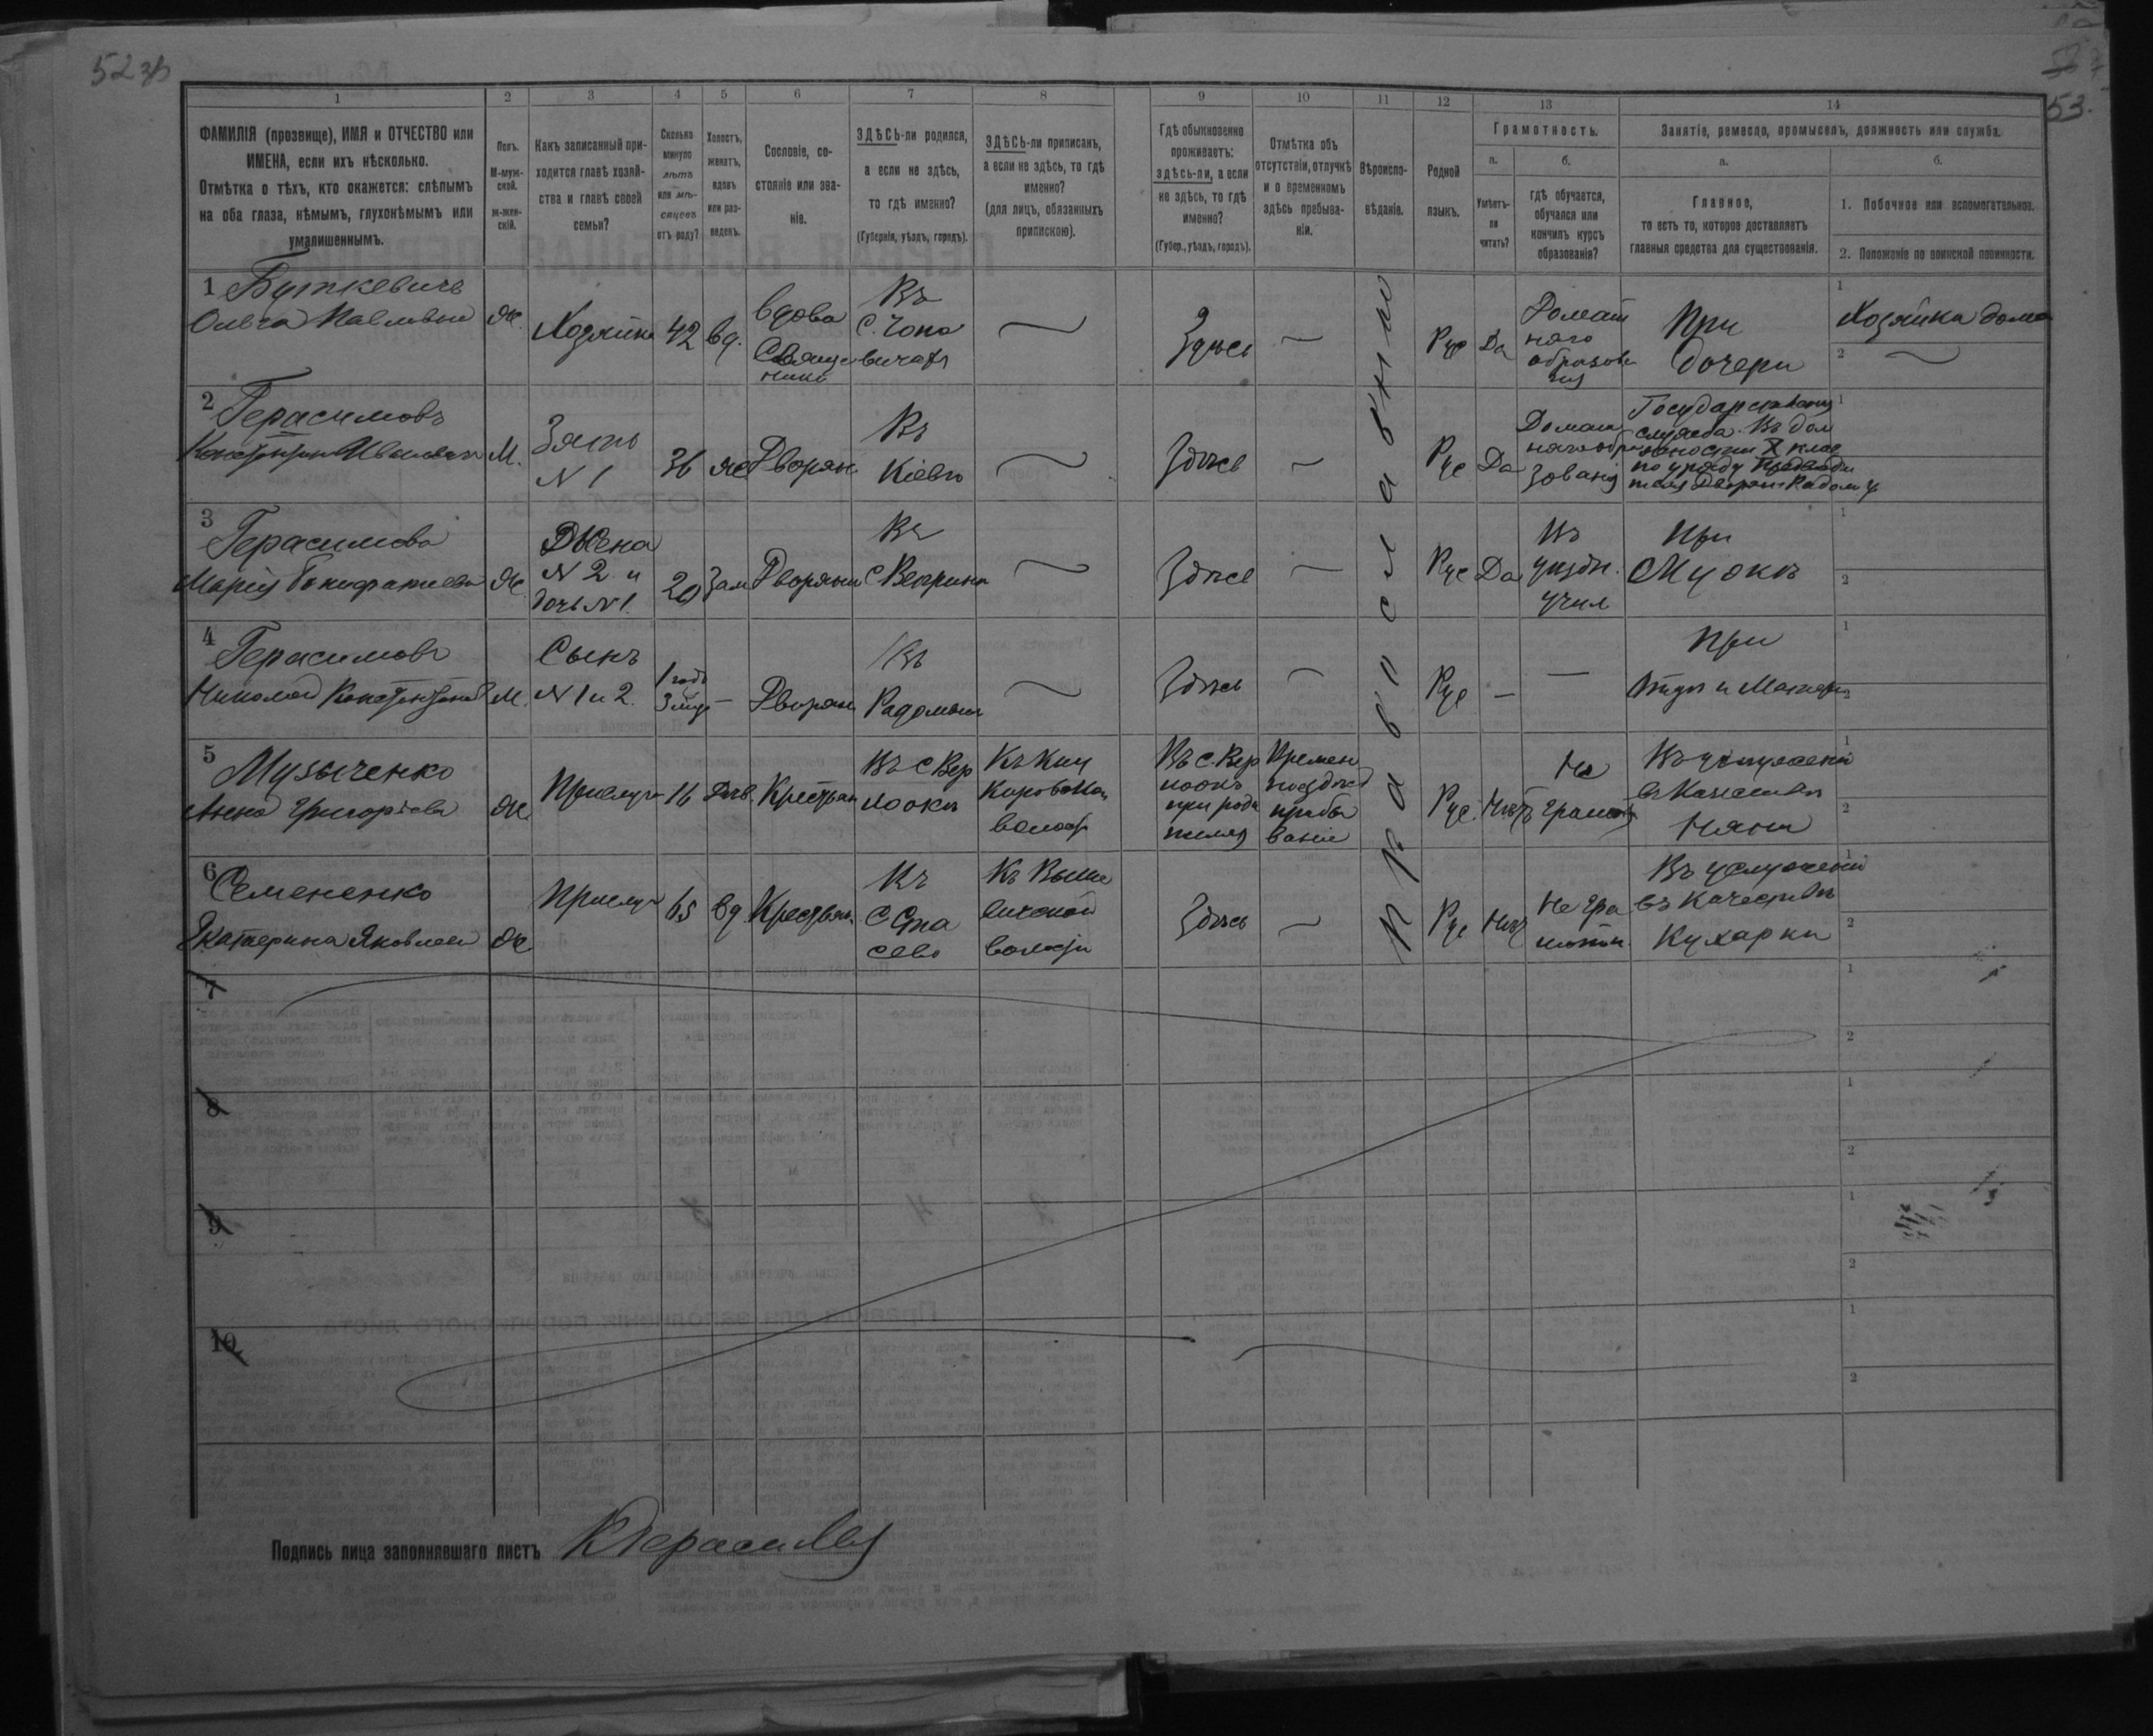 52 зв
53.
1 2 3 4 5 6 7 8 9 10 11 12 13 14
ФАМИЛІЯ (прозвище), ИМЯ и ОТЧЕСТВО или
ИМЕНА, если ихъ нѣсколько.
Отмѣтка о тѣхъ, кто окажется: слѣпымъ
на оба глаза, нѣмымъ, глухонѣмымъ или
умалишеннымъ.
Полъ.
М-муж-
ской.
ж-жен-
скій.
Какъ записанный при-
ходится главѣ хозяй-
ства и главѣ своей
семьи?
Сколько
минуло
лѣтъ
или мѣ-
сяцевъ
отъ роду?
Холостъ,
женатъ,
вдовъ
или раз-
веденъ.
Сословіе, со-
стояніе или зва-
ніе.
ЗДѢСЬ-ли родился,
а если не здѣсь,
то гдѣ именно?
(Губернія, уѣздъ, городъ).
ЗДѢСЬ-ли приписанъ,
а если не здѣсь, то гдѣ
именно?
(для лицъ, обязанныхъ
припискою).
Гдѣ обыкновенно
проживаетъ:
здѣсь-ли, а если
не здѣсь, то гдѣ
именно?
(Губер., уѣздъ, городъ).
Отмѣтка объ
отсутствіи, отлучкѣ
и о временномъ
здѣсь пребыва-
ніи.
Вѣроиспо-
вѣданіе.
Родной
языкъ.
Грамотность.
а.
Умѣетъ-
ли
читать?
б.
гдѣ обучается,
обучался или
кончилъ курсъ
образованія?
Занятіе, ремесло, промыселъ, должность или служба.
а.
Главное,
то есть то, которое доставляетъ
главныя средства для существованія.
б.
1. Побочное или вспомогательное.
2. Положеніе по воинской повинности.
Православный
1 Буткевичъ
Ольга Павловна
Ж. Хозяйка 42 вд.
вдова
Священ
ника
Въ
с. Чопо
вичахъ
Здѣсь — Рус Да
Домаш
няго
образова
нія
При
дочери
1 Хозяйка дома
2
2 Герасимовъ
Константинъ Ивановичъ
М. Зять
N 1
36 же Дворян.
Въ
Кіевѣ
Здѣсь — Рус Да
Домаш
няго обра
зованія
Государственная
служба. Въ дол
жности X клас
3 Герасимова
Марія Бонифатіева
Ж
Жена
N 2 и
дочь N 1.
20 Зам Дворянк
Въ
Здѣсь — Рус Да
Въ
уѣздн.
учил
При
Мужѣ
4 Герасимовъ
Николай Константинов
М.
Сынъ
N 1 и 2.
1 годъ
3 мѣс
— Дворян
Въ
Радомыслѣ
Здѣсь — Рус — —
При
Отцѣ и Матери
5 Музыченко
Анна Григоріева
Ж Прислуга 16 Дѣв. Крестьян
Въ с. Вер
лоокѣ
волост
Въ с. Вер
лоокѣ
при роди
теляхъ
Времен
пребы
ваніе
Рус. Нѣтъ
Не
грамотн
Въ услуженіи
въ Качествѣ
Няни
6 Семененко
Екатерина Яковлева
Ж Прислуга 65 вд. Крестьян.
Въ
с. Ста
сево
Къ Выше
вичской
волости
Здѣсь — Рус Нѣтъ
Не гра
мотн.
Въ услуженіи
въ Качествѣ
Кухарки
7
8
9
10
Подпись лица заполнявшаго листъ КГерасимов